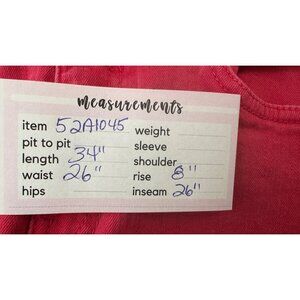 measurements
item 52A1045 weight
pit to pit sleeve
length 34" shoulder
waist 26" rise 8"
hips inseam 26"